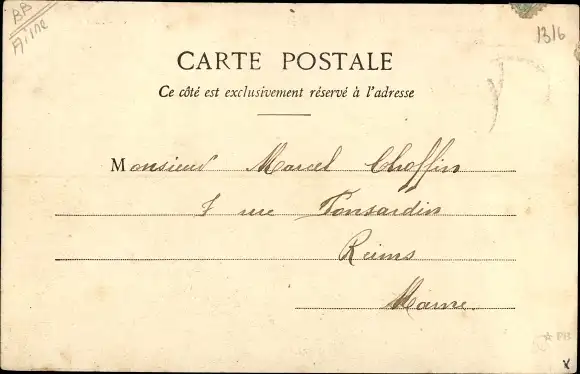 BB
Aisne
1316
CARTE POSTALE
Ce côté est exclusivement réservé à l'adresse
Monsieur Marcel Choffin
7 rue Ponsardin
Reims
Marne.
PB
x